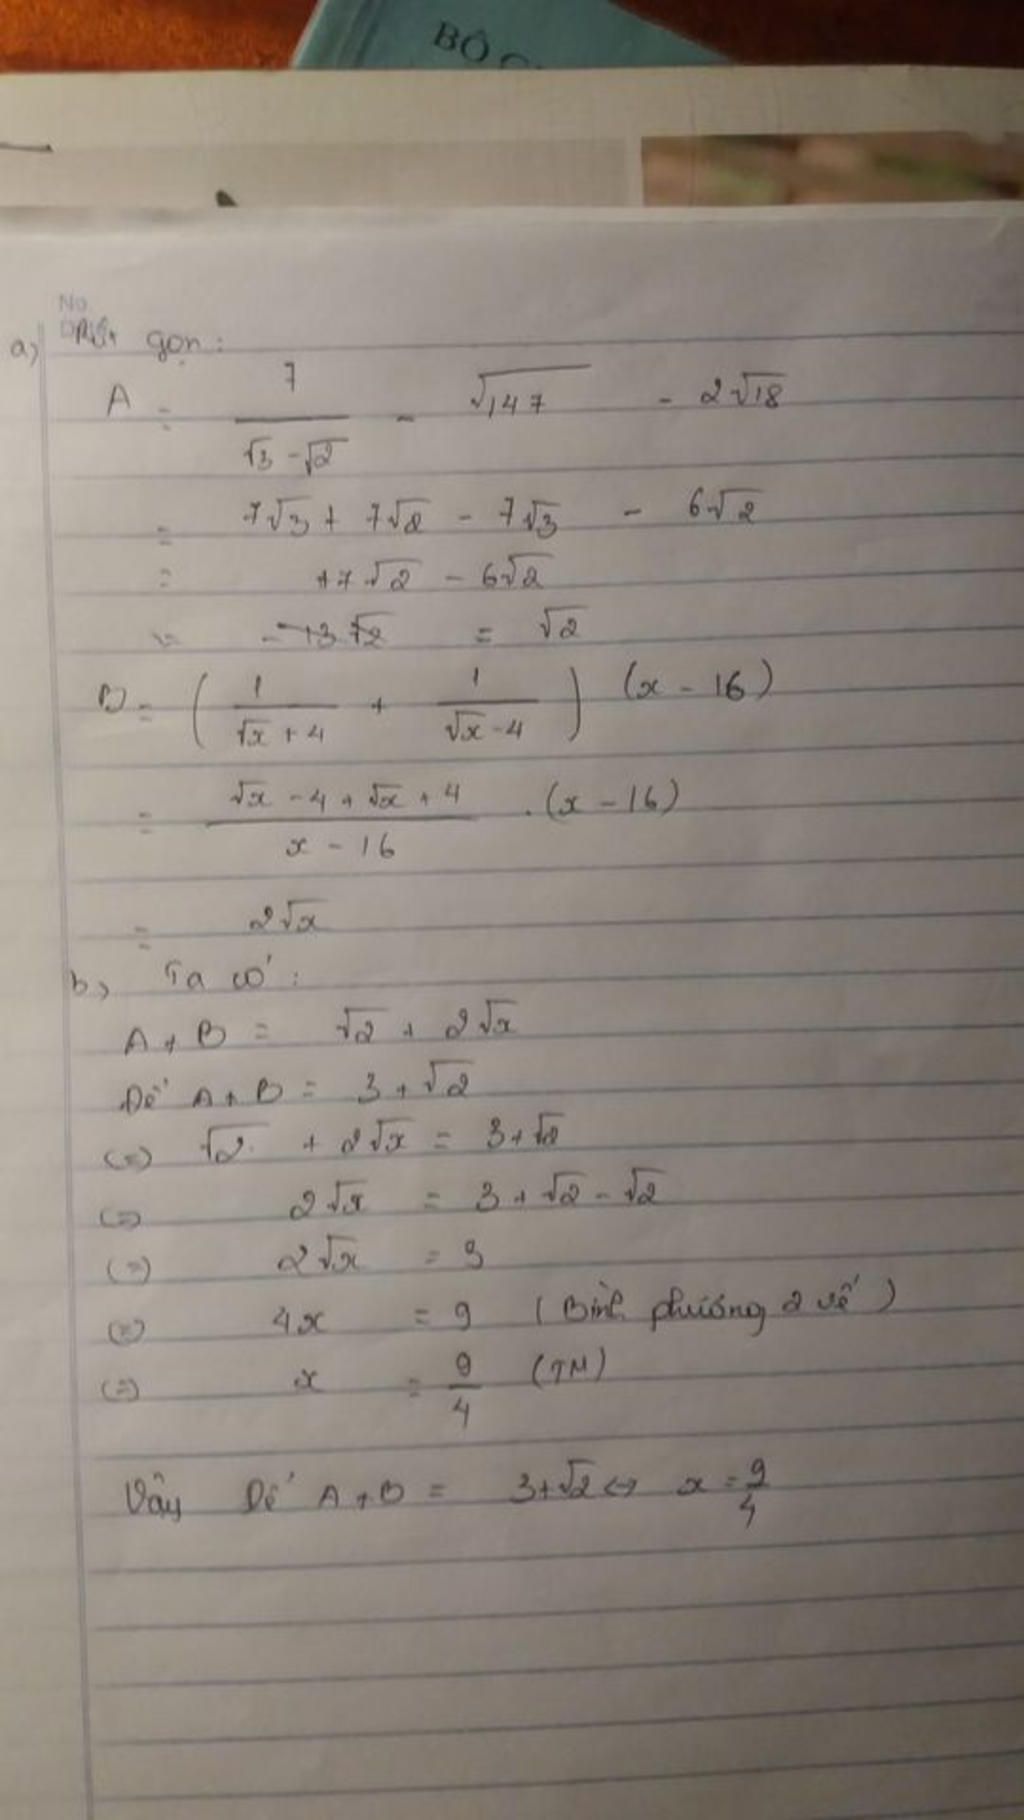 BỘ
No.
a) Rút gọn:
A = 7/(√3 - √2) - √147 - 2√18
= 7√3 + 7√2 - 7√3 - 6√2
= +7√2 - 6√2
= = √2
B = (1/(√x + 4) + 1/(√x - 4)) (x - 16)
= (√x - 4 + √x + 4)/(x - 16) . (x - 16)
= 2√x
b) Ta có:
A + B = √2 + 2√x
Để A + B = 3 + √2
(=) √2 + 2√x = 3 + √2
(=) 2√x = 3 + √2 - √2
(=) 2√x = 3
(=) 4x = 9 (Bình phương 2 vế)
(=) x = 9/4 (TM)
Vậy Để A + B = 3 + √2 <-> x = 9/4